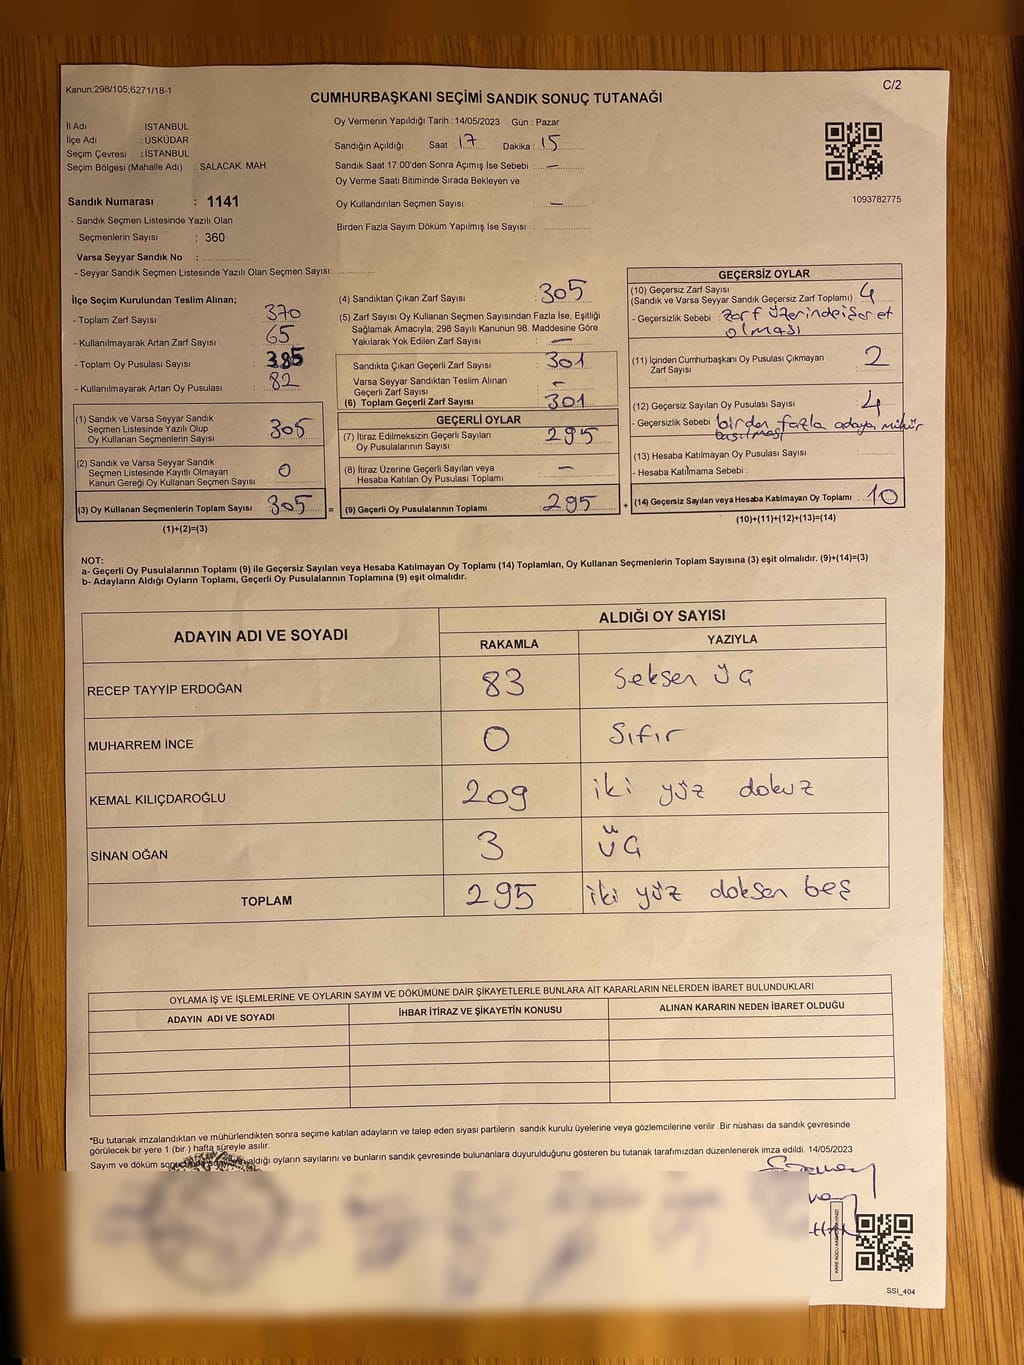 Kanun;298/105;6271/18-1
C/2
CUMHURBAŞKANI SEÇİMİ SANDIK SONUÇ TUTANAĞI
İl Adı : İSTANBUL
İlçe Adı : ÜSKÜDAR
Seçim Çevresi : İSTANBUL
Seçim Bölgesi (Mahalle Adı) : SALACAK MAH.
Sandık Numarası : 1141
- Sandık Seçmen Listesinde Yazılı Olan
Seçmenlerin Sayısı : 360
Varsa Seyyar Sandık No :
- Seyyar Sandık Seçmen Listesinde Yazılı Olan Seçmen Sayısı:
Oy Vermenin Yapıldığı Tarih : 14/05/2023 Gün : Pazar
Sandığın Açıldığı Saat : 17 Dakika : 15
Sandık Saat 17:00'den Sonra Açımış İse Sebebi : —
Oy Verme Saati Bitiminde Sırada Bekleyen ve
Oy Kullandırılan Seçmen Sayısı : —
Birden Fazla Sayım Döküm Yapılmış İse Sayısı :
1093782775
İlçe Seçim Kurulundan Teslim Alınan;
- Toplam Zarf Sayısı : 370
- Kullanılmayarak Artan Zarf Sayısı : 65
- Toplam Oy Pusulası Sayısı :
- Kullanılmayarak Artan Oy Pusulası : 82
(1) Sandık ve Varsa Seyyar Sandık
Seçmen Listesinde Yazılı Olup
Oy Kullanan Seçmenlerin Sayısı : 305
(2) Sandık ve Varsa Seyyar Sandık
Seçmen Listesinde Kayıtlı Olmayan
Kanun Gereği Oy Kullanan Seçmen Sayısı : 0
(3) Oy Kullanan Seçmenlerin Toplam Sayısı : 305
(1)+(2)=(3)
=
(4) Sandıktan Çıkan Zarf Sayısı : 305
(5) Zarf Sayısı Oy Kullanan Seçmen Sayısından Fazla İse, Eşitliği
Sağlamak Amacıyla; 298 Sayılı Kanunun 98. Maddesine Göre
Yakılarak Yok Edilen Zarf Sayısı : —
Sandıkta Çıkan Geçerli Zarf Sayısı : 301
Varsa Seyyar Sandıktan Teslim Alınan
Geçerli Zarf Sayısı : —
(6) Toplam Geçerli Zarf Sayısı : 301
GEÇERLİ OYLAR
(7) İtiraz Edilmeksizin Geçerli Sayılan
Oy Pusulalarının Sayısı : 295
(8) İtiraz Üzerine Geçerli Sayılan veya
Hesaba Katılan Oy Pusulası Toplamı : —
(9) Geçerli Oy Pusulalarının Toplamı : 295
+
GEÇERSİZ OYLAR
(10) Geçersiz Zarf Sayısı
(Sandık ve Varsa Seyyar Sandık Geçersiz Zarf Toplamı) : 4
- Geçersizlik Sebebi : Zarf üzerinde işaret
olması
(11) İçinden Cumhurbaşkanı Oy Pusulası Çıkmayan
Zarf Sayısı : 2
(12) Geçersiz Sayılan Oy Pusulası Sayısı : 4
- Geçersizlik Sebebi : birden fazla adaya mühür
basılması
(13) Hesaba Katılmayan Oy Pusulası Sayısı :
- Hesaba Katılmama Sebebi :
(14) Geçersiz Sayılan veya Hesaba Katılmayan Oy Toplamı : 10
(10)+(11)+(12)+(13)=(14)
NOT:
a- Geçerli Oy Pusulalarının Toplamı (9) ile Geçersiz Sayılan veya Hesaba Katılmayan Oy Toplamı (14) Toplamları, Oy Kullanan Seçmenlerin Toplam Sayısına (3) eşit olmalıdır. (9)+(14)=(3)
b- Adayların Aldığı Oyların Toplamı, Geçerli Oy Pusulalarının Toplamına (9) eşit olmalıdır.
ADAYIN ADI VE SOYADI
ALDIĞI OY SAYISI
RAKAMLA YAZIYLA
RECEP TAYYİP ERDOĞAN 83 Seksen üç
MUHARREM İNCE 0 Sıfır
KEMAL KILIÇDAROĞLU 209 iki yüz dokuz
SİNAN OĞAN 3 üç
TOPLAM 295 iki yüz doksan beş
OYLAMA İŞ VE İŞLEMLERİNE VE OYLARIN SAYIM VE DÖKÜMÜNE DAİR ŞİKAYETLERLE BUNLARA AİT KARARLARIN NELERDEN İBARET BULUNDUKLARI
ADAYIN ADI VE SOYADI İHBAR İTİRAZ VE ŞİKAYETİN KONUSU ALINAN KARARIN NEDEN İBARET OLDUĞU
*Bu tutanak imzalandıktan ve mühürlendikten sonra seçime katılan adayların ve talep eden siyasi partilerin sandık kurulu üyelerine veya gözlemcilerine verilir .Bir nüshası da sandık çevresinde
görülecek bir yere 1 (bir ) hafta süreyle asılır.
Sayım ve döküm aldığı oyların sayılarını ve bunların sandık çevresinde bulunanlara duyurulduğunu gösteren bu tutanak tarafımızdan düzenlenerek imza edildi. 14/05/2023
SSI_404